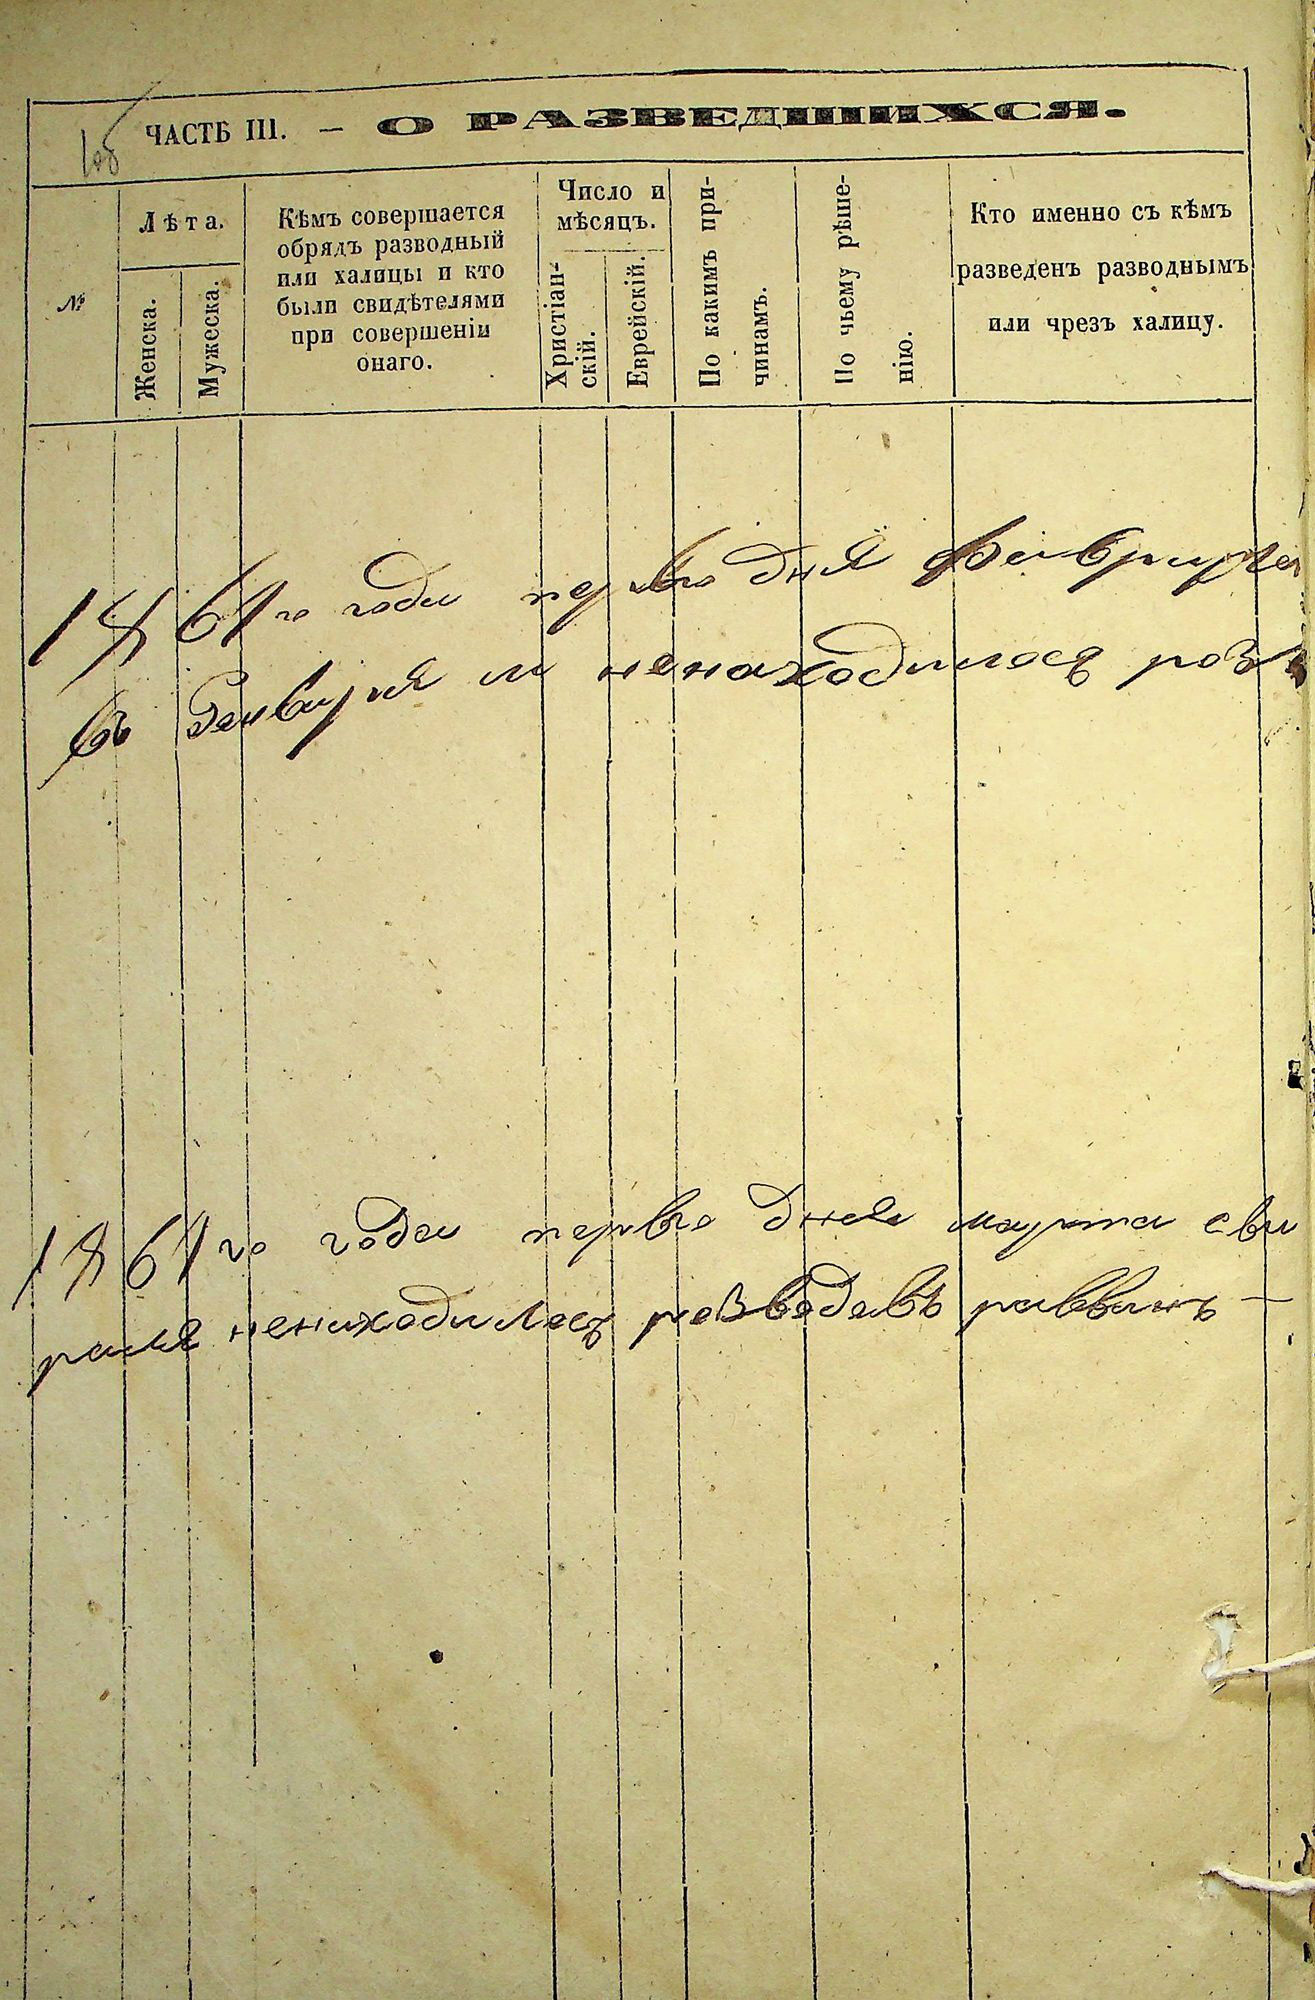 ЧАСТЬ III. — О РАЗВЕДШИХСЯ.
№
Лѣта.
Женска.
Мужеска.
Кѣмъ совершается
обрядъ разводный
или халицы и кто
были свидѣтелями
при совершеніи
онаго.
Число и
мѣсяцъ.
Христіан-
скій.
Еврейскій.
По какимъ при-
чинамъ.
По чьему рѣше-
нію.
Кто именно съ кѣмъ
разведенъ разводнымъ
или чрезъ халицу.
1861го года перво дня февруия
въ Генвуря м ненаходилось роз
1861го года перво дня марта сви
ненаходилось розводовъ раввинъ —